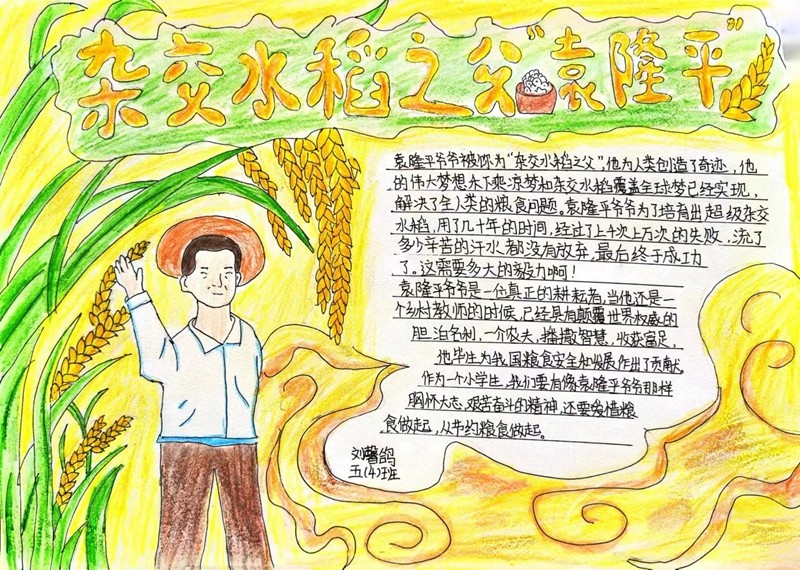 杂交水稻之父"袁隆平"
袁隆平爷爷被称为"杂交水稻之父"，他为人类创造了奇迹，他
的伟大梦想禾下乘凉梦和杂交水稻覆盖全球梦已经实现，
解决了全人类的粮食问题。袁隆平爷爷为了培育出超级杂交
水稻，用了几十年的时间，经过了上千次上万次的失败，流了
多少辛苦的汗水都没有放弃，最后终于成功
了。这需要多大的毅力啊！
袁隆平爷爷是一位真正的耕耘者，当他还是一
个乡村教师的时候，已经具有颠覆世界权威的
胆，泊名利，一介农夫，播撒智慧，收获富足，
他毕生为我国粮食安全和发展作出了贡献，
作为一个小学生，我们要有像袁隆平爷爷那样
胸怀大志，艰苦奋斗的精神，还要爱惜粮
食做起，从节约粮食做起。
刘馨鸽
五(4)班